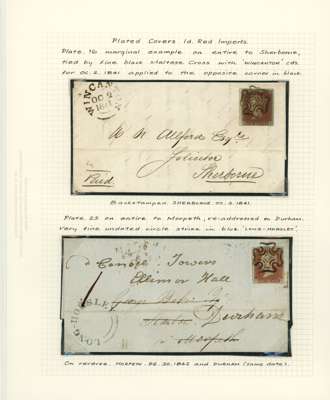 Plated Covers 1d. Red Imperfs.
Plate 16 marginal example on entire to Sherborne,
tied by fine black Maltese Cross with 'WINCANTON' cds.
for OC. 2, 1841 applied to the opposite corner in black.
WINCANTON
OC 2
1841
Esqre
Solicitor
Sherborne
Paid
Backstamped SHERBORNE OC. 2. 1841.
Plate 25 on entire to Morpeth, re-addressed to Durham.
Very fine undated circle strike in blue 'LONG-HORSLEY'.
Towers
Elinor Hall
Durham
Morpeth
LONG-HORSLEY
On reverse, MORPETH and DURHAM (same date).